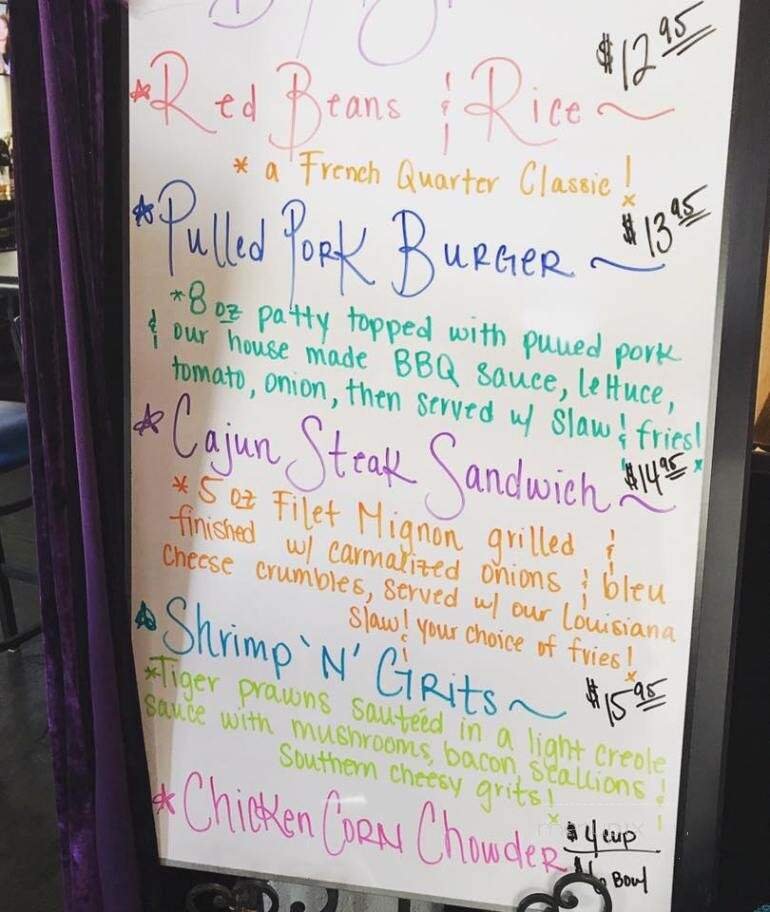 $12.95
*Red Beans & Rice ~
* a French Quarter Classic!
*Pulled Pork Burger ~ $13.95
*8 oz patty topped with pulled pork
& our house made BBQ sauce, lettuce,
tomato, onion, then served w/ slaw & fries!
*Cajun Steak Sandwich ~ $14.95
*5 oz Filet Mignon grilled &
finished w/ carmalized onions & bleu
cheese crumbles, served w/ our Louisiana
slaw & your choice of fries!
*Shrimp 'N' Grits ~ $15.95
*Tiger prawns sautéed in a light creole
sauce with mushrooms, bacon, scallions &
Southern cheesy grits!
*Chicken Corn Chowder $4 cup
Bowl